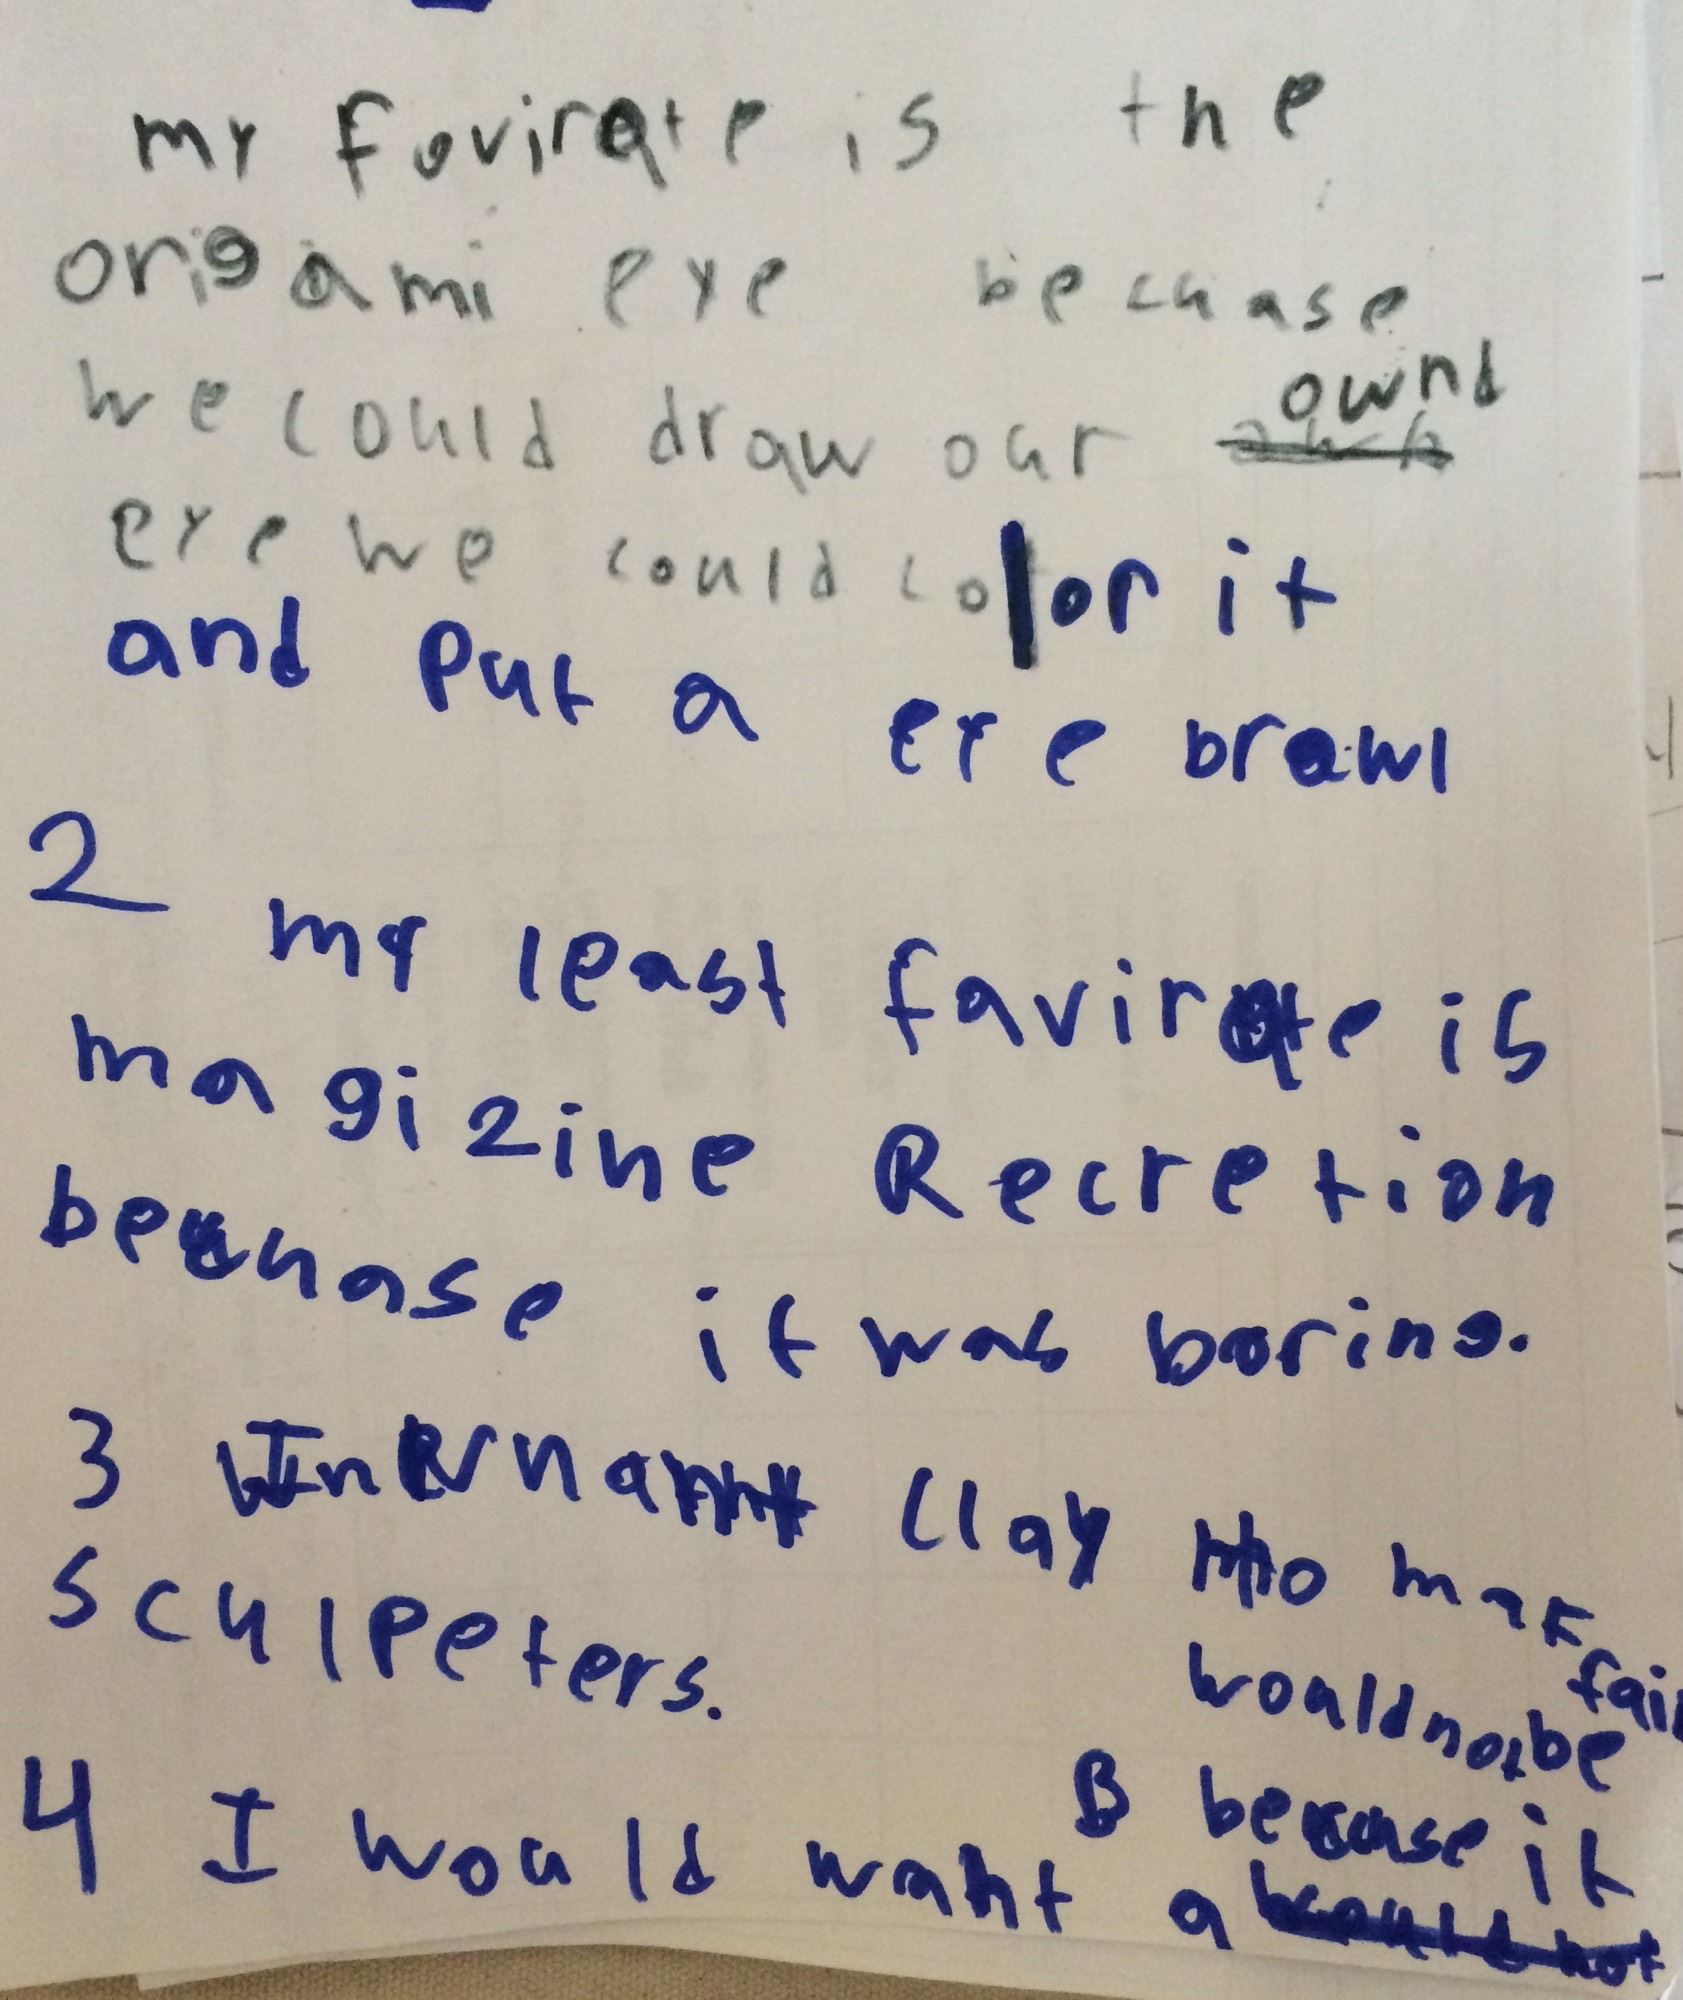 my favirate is the
origami eye becuase
we could draw our ownd
eye we could color it
and put a eye brawl
2
my least favirate is
magizine Recretion
becuase it was boring.
3 I want Clay to mak
sculpeters.
4 I would want a B because it
would not be fair